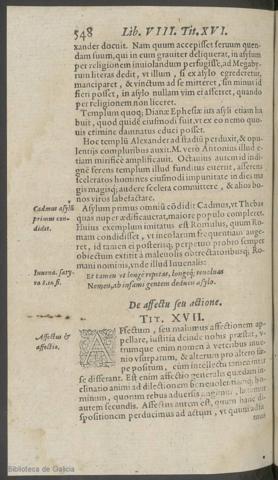 548 Lib. VIII. Tit. XVI.
xander docuit. Nam quum accepisset seruum quen-
dam suum, qui in eum grauiter deliquerat, in asylum
per religionem inuiolandum perfugisse, ad Megaby-
zum literas dedit, vt illum, si ex asylo egrederetur,
manciparet, & vinctum ad se mitteret, sin minus id
fieri posset, in asylo nullam vim ei afferret, quando
per religionem non liceret.
Templum quoq; Dianæ Ephesiæ ius asyli etiam ha
buit, quod quidē eiusmodi fuit, vt ex eo nemo quo-
uis etimine damnatus educi posset.
Hoc templū Alexander ad stadiū perduxit, & opu-
lentijs compluribus auxit. M. verò Antonius illud e-
tiam mirificè amplificauit. Octauius autem id indi-
gnè ferens templum illud funditus euertit, asserens
sceleratos homines eiusmodi impunitate in dies ma
gis magisq; audere scelera committere, & alios bo-
nos viros labefactare.
Cadmus asyli
primus con-
didit.
Asylum primus omniū cōdidit Cadmus, vt Thebas
quas nuper ædificauerat, maiore populo compleret.
Huius exemplum imitatus est Romulus, quum Ro-
mam condidisset, vt incolarum frequentiam auge-
ret, id tamen ei posteriq; perpetuo probro semper
obiectum extitit à maleuolis obtrectatoribusq; Ro-
mani nominis, vnde illud Iuuenalis:
Iuuena. saty-
ra 8. in fi.
Et tamen vt longè repetas, longeq; reuoluas
Nomen, ab infami gentem deducis asylo.
De affectu seu actione.
TIT. XVII.
Affectus &
affectio.
AFfectum, seu malumus affectionem ap-
pellare, iustitia deinde nobis præstat, v-
trumque enim nomen à veteribus inue-
nio vsurpatum, & alterum pro altero sæ-
pe positum, cùm intellectu tamen inter
se differant. Est enim affectio generalis quædam in-
clinatio animi ad dilectionem beneuolentiamq; ho-
minum, quorum rebus aduersis angimur, lætamur
autem secundis. Affectum autem est, quum hanc di-
spositionem perducimus ad actum, vt quum
Biblioteca de Galicia